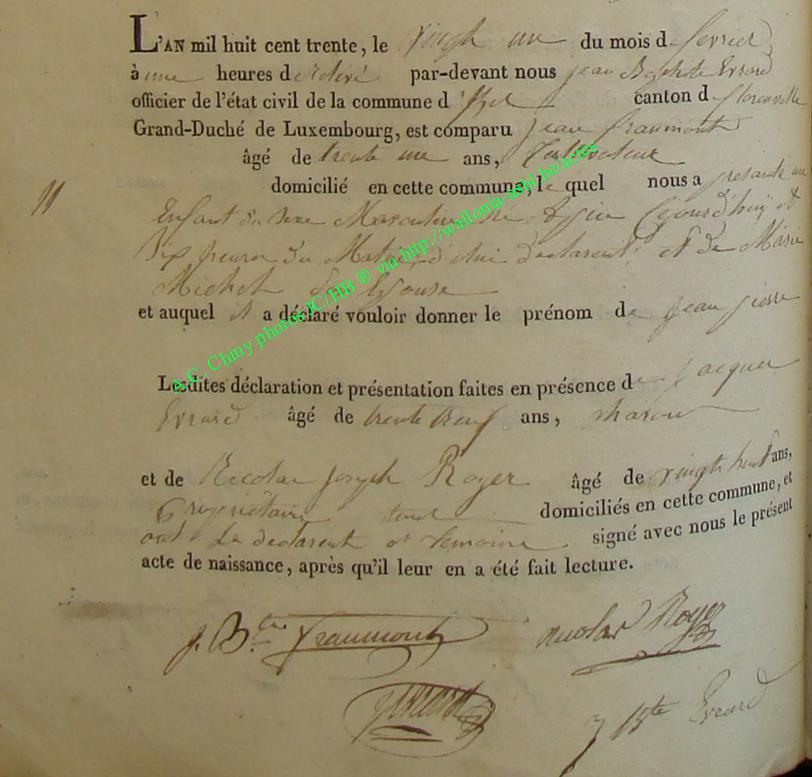 L'AN mil huit cent trente, le vingt un du mois de fevrier
à une heures de relevé par-devant nous jean Baptiste Evrard
officier de l'état civil de la commune d'Izel canton de florenville
Grand-Duché de Luxembourg, est comparu jean fraumont
âgé de trente un ans, Cultivateur
11 domicilié en cette commune, le quel nous a presenté un
Enfant du sexe Masculin né ajourd'huy à
Dix heures du Matin, de lui declarent et de Marie
Michel Son Epouse
et auquel il a déclaré vouloir donner le prénom de jean pierre
Lesdites déclaration et présentation faites en présence de jacques
Evrard âgé de trente neuf ans, charon
et de Nicolas joseph Royer âgé de vingt huit ans,
Proprietaire domiciliés en cette commune, et
ont Le declarent et temoins signé avec nous le présent
acte de naissance, après qu'il leur en a été fait lecture.
j. Bte fraumont nicolas Royer
j Bte Evrard
A.C. Chiny photos JC/HB ® via http://wallonia-asbl.be/actes